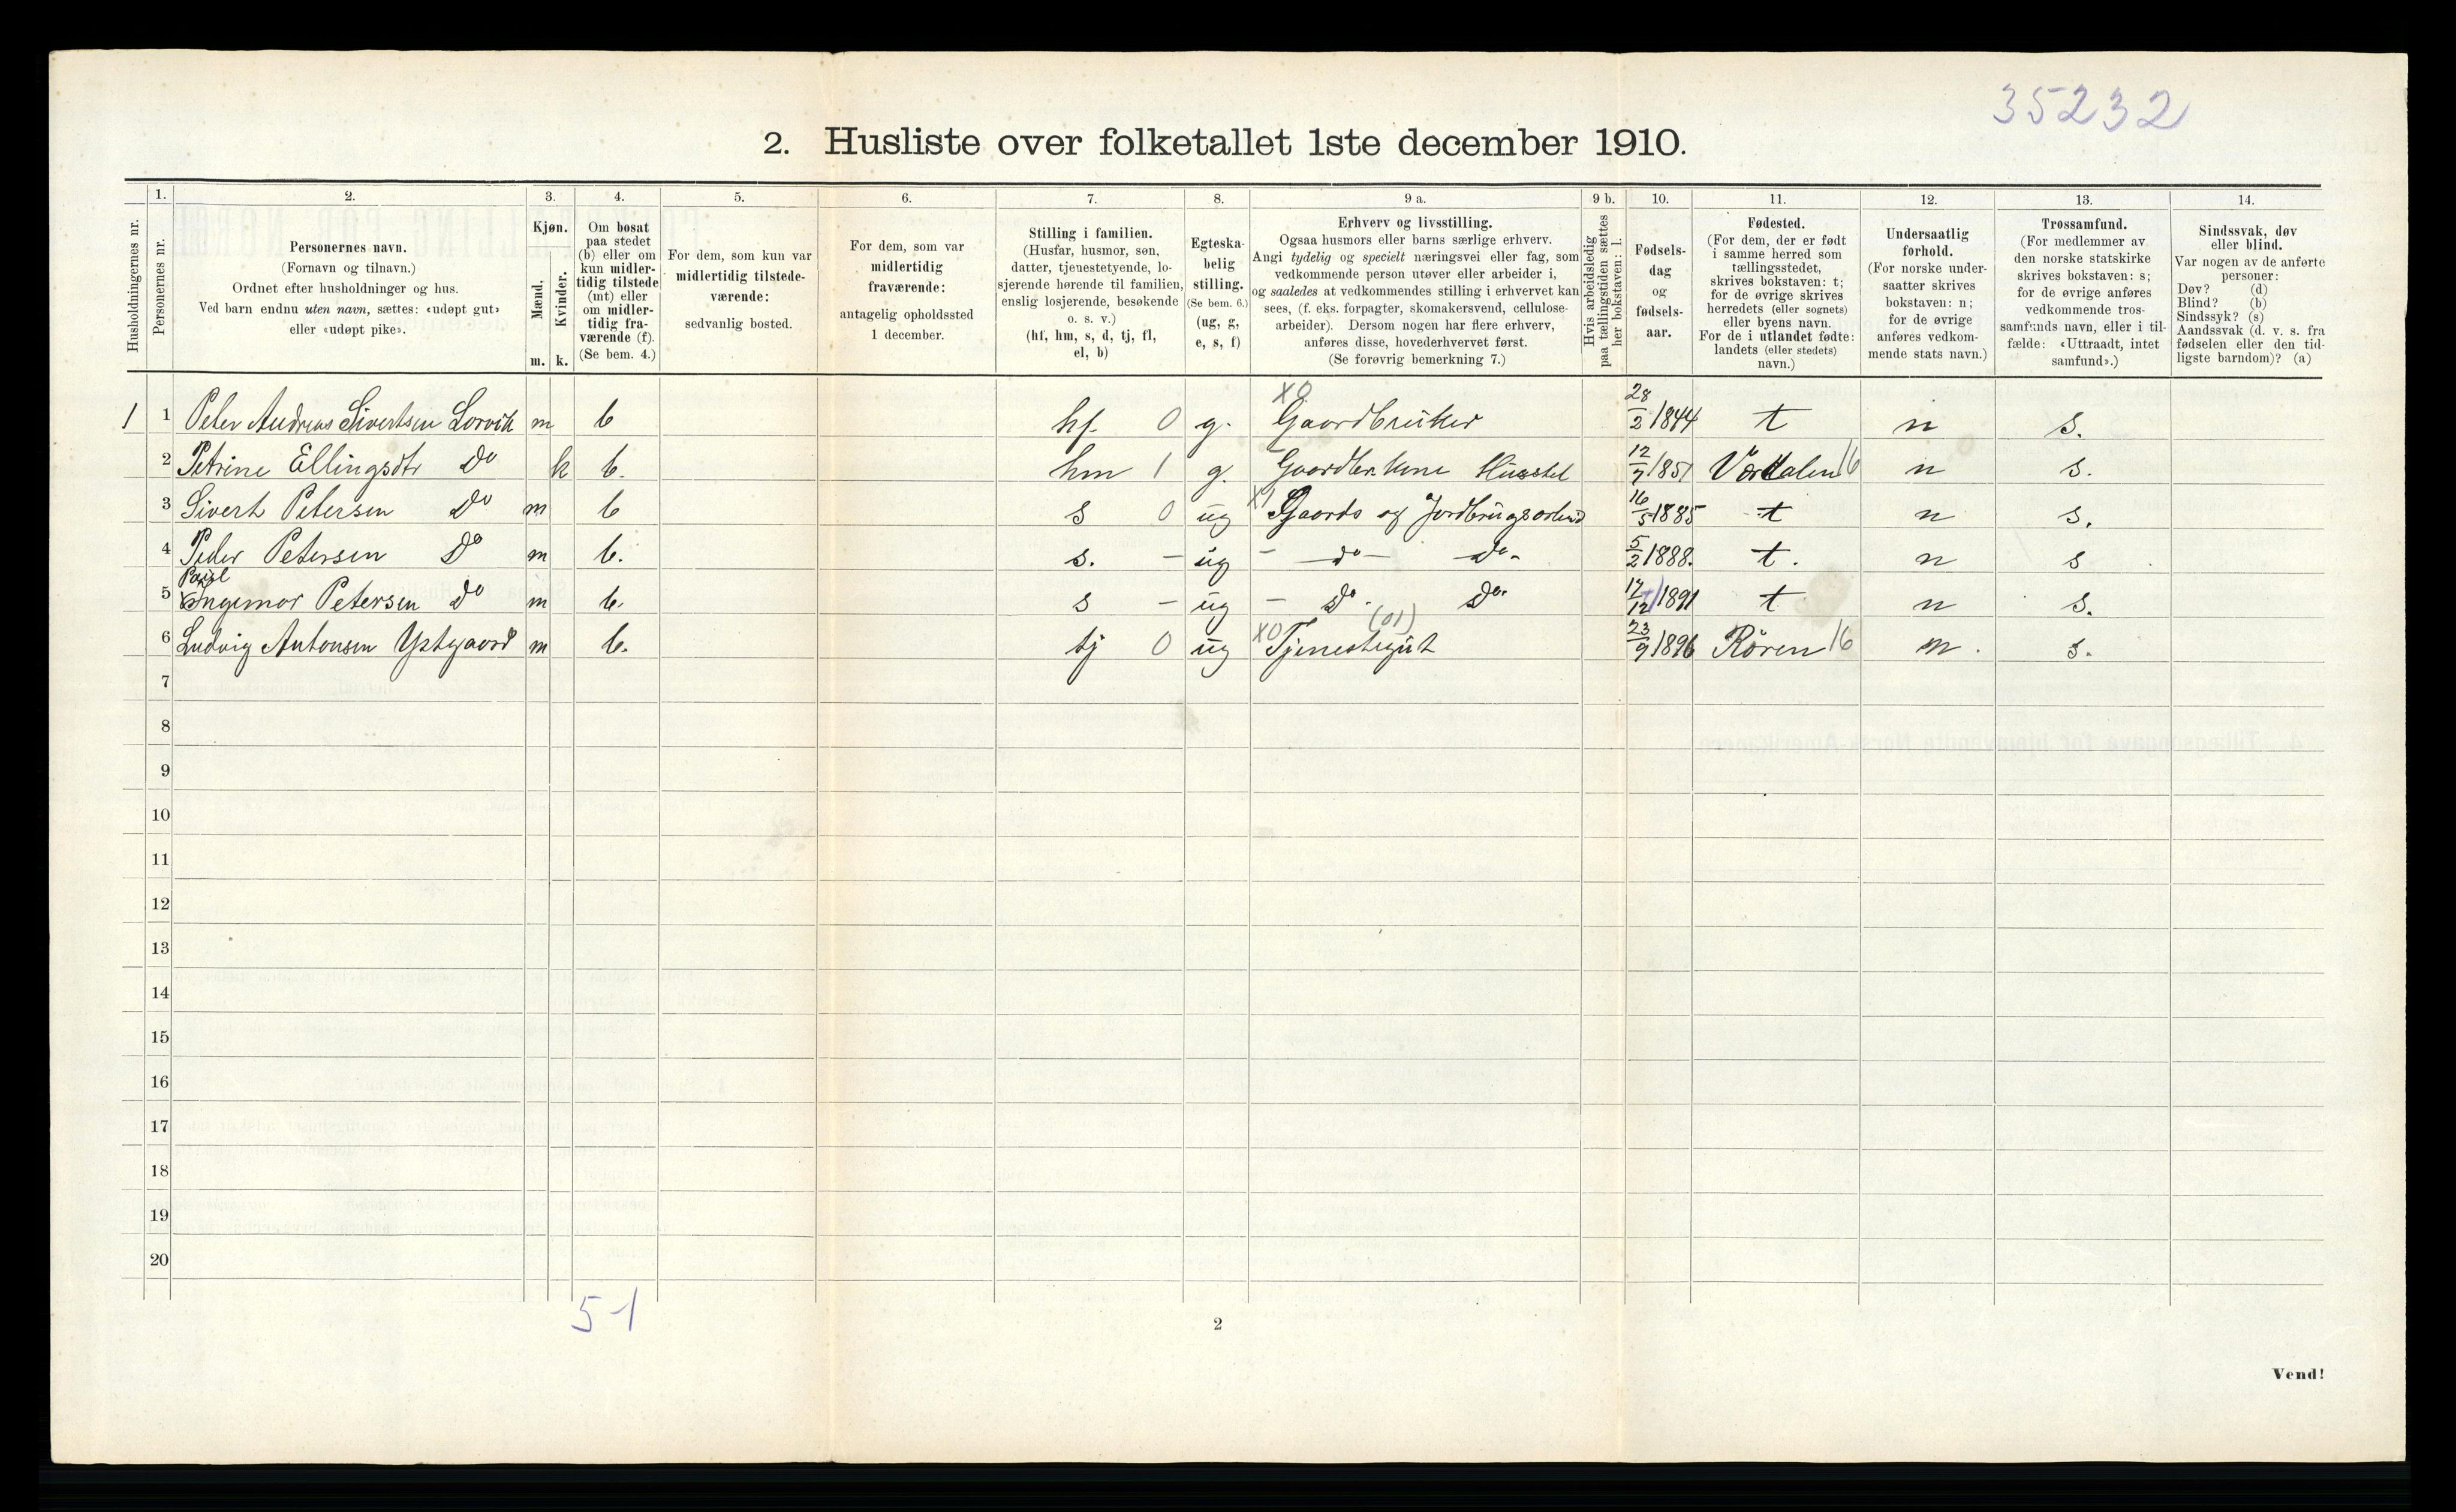 35232
2. Husliste over folketallet 1ste december 1910.
Husholdningernes nr.
1.
Personernes nr.
2.
Personernes navn.
(Fornavn og tilnavn.)
Ordnet efter husholdninger og hus.
Ved barn endnu uten navn, sættes: «udøpt gut»
eller «udøpt pike».
3.
Kjøn.
Mænd.
Kvinder.
m. k.
4.
Om bosat
paa stedet
(b) eller om
kun midler-
tidig tilstede
(mt) eller
om midler-
tidig fra-
værende (f).
(Se bem. 4.)
5.
For dem, som kun var
midlertidig tilstede-
værende:
sedvanlig bosted.
6.
For dem, som var
midlertidig
fraværende:
antagelig opholdssted
1 december.
7.
Stilling i familien.
(Husfar, husmor, søn,
datter, tjenestetyende, lo-
sjerende hørende til familien,
enslig losjerende, besøkende
o. s. v.)
(hf, hm, s, d, tj, fl,
el, b)
8.
Egteska-
belig
stilling.
(Se bem. 6.)
(ug, g,
e, s, f)
9 a.
Erhverv og livsstilling.
Ogsaa husmors eller barns særlige erhverv.
Angi tydelig og specielt næringsvei eller fag, som
vedkommende person utøver eller arbeider i,
og saaledes at vedkommendes stilling i erhvervet kan
sees, (f. eks. forpagter, skomakersvend, cellulose-
arbeider). Dersom nogen har flere erhverv,
anføres disse, hovederhvervet først.
(Se forøvrig bemerkning 7.)
9 b.
Hvis arbeidsledig
paa tællingstiden sættes
her bokstaven: l.
10.
Fødsels-
dag
og
fødsels-
aar.
11.
Fødested.
(For dem, der er født
i samme herred som
tællingsstedet,
skrives bokstaven: t;
for de øvrige skrives
herredets (eller sognets)
eller byens navn.
For de i utlandet fødte:
landets (eller stedets)
navn.)
12.
Undersaatlig
forhold.
(For norske under-
saatter skrives
bokstaven: n;
for de øvrige
anføres vedkom-
mende stats navn.)
13.
Trossamfund.
(For medlemmer av
den norske statskirke
skrives bokstaven: s;
for de øvrige anføres
vedkommende tros-
samfunds navn, eller i til-
fælde: «Uttraadt, intet
samfund».)
14.
Sindssvak, døv
eller blind.
Var nogen av de anførte
personer:
Døv? (d)
Blind? (b)
Sindssyk? (s)
Aandssvak (d. v. s. fra
fødselen eller den tid-
ligste barndom)? (a)
X0
1 1 Peter Andreas Sivertsen Lorvik m b hf. 0 g. Gaardbruker 28/2 1844 t n s.
2 Petrine Ellingsdtr Do k b. hm 1 g. Husstel 12/7 1851 Værdalen 16 n s.
3 Sivert Petersen Do m b s 0 ug X1 Gaards og Jordbrugsarbeid 16/5 1885 t n s.
4 Peder Petersen Do m b. s. - ug - do - do - 5/2 1888. t. n s
Paul
5 Ingemar Petersen Do m b. s - ug - Do. Do. 17/12 1891 t n s.
(01)
6 Ludvig Antonsen Ystgaard m b. tj 0 ug X0 Tjenestegut 23/9 1896 Rören 16 n. s.
7
8
9
10
11
12
13
14
15
16
17
18
19
20
5-1
2
Vend!